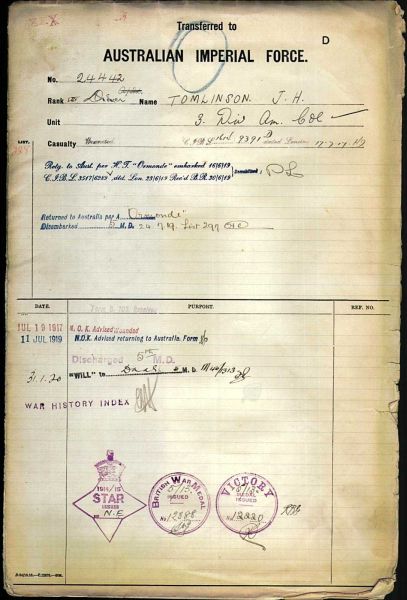 Transferred to
D
AUSTRALIAN IMPERIAL FORCE.
No. 24442
Rank Driver Name TOMLINSON. J. H.
Unit 3. Div Am. Col
LIST.
Casualty C.I.B.L. 9391 D dated London 17-7-17
Retg. to Aust. per H.T. "Ormonde" embarked 16/6/19
C.I.B.L. 3517/6289 dtd. Lon. 23/6/19 Rec'd B.R. 30/6/19
Returned to Australia per "Ormonde"
Disembarked 5 M.D. 24.7.19. List 297
DATE. PURPORT. REF. NO.
JUL 19 1917 N.O.K. Advised Wounded
11 JUL 1919 N.O.K. Advised returning to Australia. Form
Discharged 5th M.D.
31.1.20 "WILL" to M.D.
WAR HISTORY INDEX
1914/15
STAR
ISSUED
N.E.
BRITISH WAR MEDAL
5/15
ISSUED
No 12888
VICTORY
5/15
MEDAL
ISSUED
No 12220